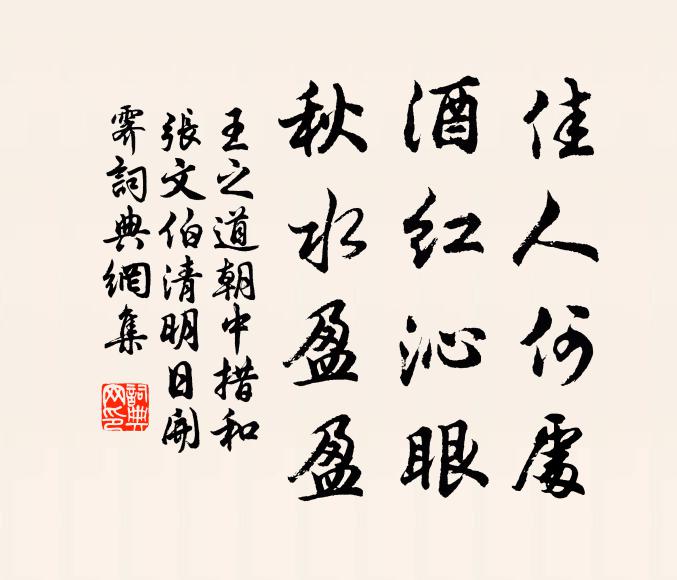 佳人何處
酒紅沁眼
秋水盈盈
王之道朝中措和
張文伯清明日開
霽詞典網集
詞典
网印